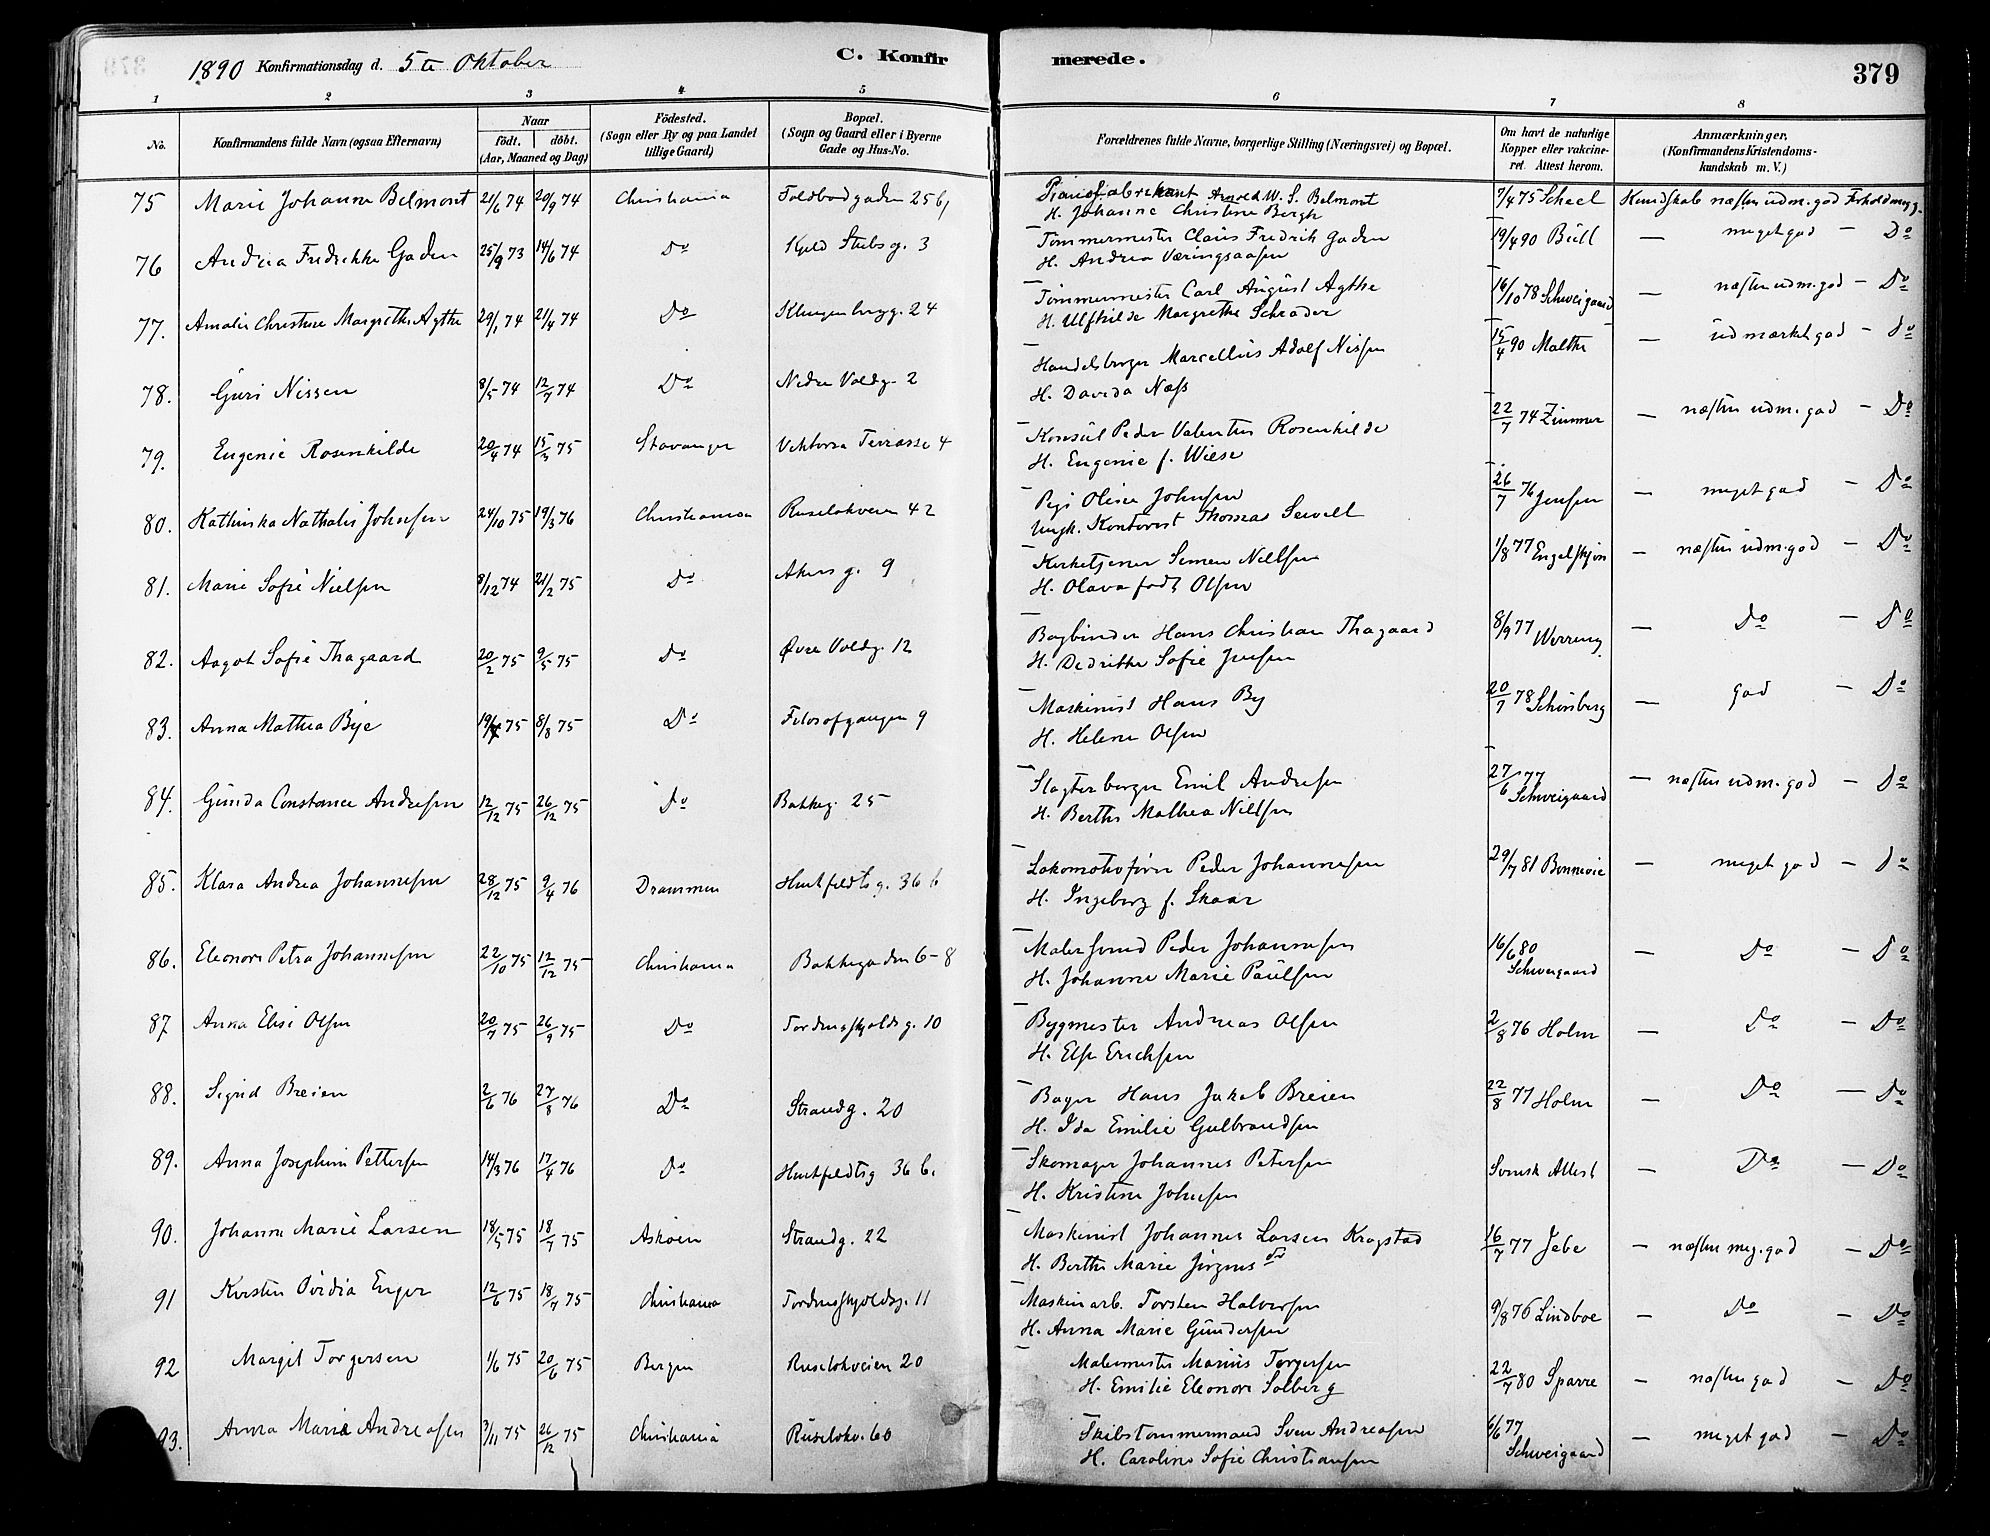 1890 Konfirmationsdag d. 5te Oktober C. Konfirmerede. 379
1 2 3 4 5 6 7 8
No. Konfirmandens fulde Navn (ogsaa Efternavn) Naar födt. döbt. (Aar, Maaned og Dag) Födested. (Sogn eller By og paa Landet tillige Gaard) Bopæl. (Sogn og Gaard eller i Byerne Gade og Hus-No. Forældrenes fulde Navne, borgerlige Stilling (Næringsvei) og Bopæl. Om havt de naturlige Kopper eller vakcineret. Attest herom. Anmærkninger, (Konfirmandens Kristendomskundskab m. V.)
75 Marie Johanne Belmont 21/6 74 20/9 74 Christiania Toldbodgaden 25 b, Pianofabrikant Arnold W. S. Belmont 7/4 75 Scheel Kundskab næsten udm. god Forhold meg g.
H. Johanne Christine Bergh
76 Andrea Fredrikke Gaden 25/9 73 14/6 74 Do Kjeld Stubs g. 3 Tømmermester Claus Fredrik Gaden 19/4 90 Bull — meget god — Do
H. Andrea Væringsaasen
77. Amalie Christine Margrethe Agthe 29/1 74 21/4 74 Do Klingenbergg. 24 Tømmermester Carl August Agthe 16/10 78 Schweigaard — næsten udm. god — Do
H. Ulfhilde Margrethe Schrader
78. Guri Nissen 8/5 74 12/7 74 Do Nedre Voldg. 2 Handelsborger Marcellus Adolf Nissen 15/4 90 Malthe — udmærket god — do
H. Davida Næss
79. Eugenie Rosenkilde 20/4 74 15/3 75 Stavanger Viktoria Terrasse 4 Konsul Peder Valentin Rosenkilde 22/7 74 Zimmer — næsten udm. god — Do
H. Eugenie f. Wiese
80. Kathinka Nathalie Johnsen 24/10 75 19/3 76 Christiania Ruseløkveien 42 Pige Olise Johnsen 26/7 76 Jensen — meget god — Do
Ungk. Kontorist Thomas Sewell
81. Marie Sofie Nielsen 8/12 74 21/2 75 Do Akers g. 9 Kirketjener Simen Nielsen 1/8 77 Engelskjøn — næsten udm. god — Do
H. Olava født Olsen
82. Aagot Sofie Thagaard 20/2 75 9/5 75 Do Øvre Voldg. 12 Bogbinder Hans Christian Thagaard 8/9 77 Werring — Do — Do
H. Sofie Jensen
83. Anna Mathea Bye 19/4 75 8/8 75 Do Filosofgangen 9 Maskinist Hans By 20/7 78 Schønberg — god — Do
H. Helene Olsen
84. Gunda Constance Andresen 12/12 75 26/12 75 Do Bakkeg. 25 Slagterborger Emil Andresen 27/6 77 Schweigaard — næsten udm. god — Do
H. Berthe Mathea Nielsen
85. Klara Andrea Johannesen 28/12 75 9/4 76 Drammen Huitfeldts g. 36 b Lokomotivfører Peder Johannesen 29/7 81 Bonnevie — meget god — Do
H. Ingeborg f. Skaar
86. Eleonore Petra Johannesen 22/10 75 12/12 75 Christiania Bakkegaden 6-8 Malersvend Peder Johannesen 16/6 80 Schweigaard — Do — Do
H. Johanne Marie Paulsen
87 Anna Elise Olsen 20/7 75 26/9 75 Do Tordenskjolds g. 10 Bygmester Andreas Olsen 2/8 76 Holm — Do — Do
H. Else Erichsen
88. Sigrid Breien 2/6 76 27/8 76 Do Strandg. 20 Bager Hans Jakob Breien 22/8 77 Holm — Do — Do
H. Ida Emilie Gulbrandsen
89. Anna Josephine Pettersen 14/3 76 17/4 76 Do Huitfeldtsg 36 b. Skomager Johannes Petersen Svensk Attest — Do — Do
H. Kristine Johnsen
90. Johanne Marie Larsen 18/5 75 18/7 75 Askøen Strandg. 22 Maskinist Johannes Larsen Kragstad 16/7 77 Jebe — næsten meg. god — Do
H. Berthe Marie Jørgensdr
91 Kirsten Ovidia Enger 12/6 75 18/7 75 Christiania Tordenskjoldsg. 11 Maskinarb. Torsten Halvorsen 9/8 76 Lindboe — Do — Do
H. Anna Marie Gundersen
92 Margit Torgersen 1/6 75 20/6 75 Bergen Ruseløkveien 20 Malermester Marius Torgersen 22/7 80 Sparre — næsten god — Do
H. Emilie Eleonore Solberg
93. Anna Marie Andreasen 3/11 75 26/12 75 Christiania Ruseløkv. 60 Skibstømmermand Sven Andreasen 6/6 77 Schweigaard — meget god — Do
H. Caroline Sofie Christiansen